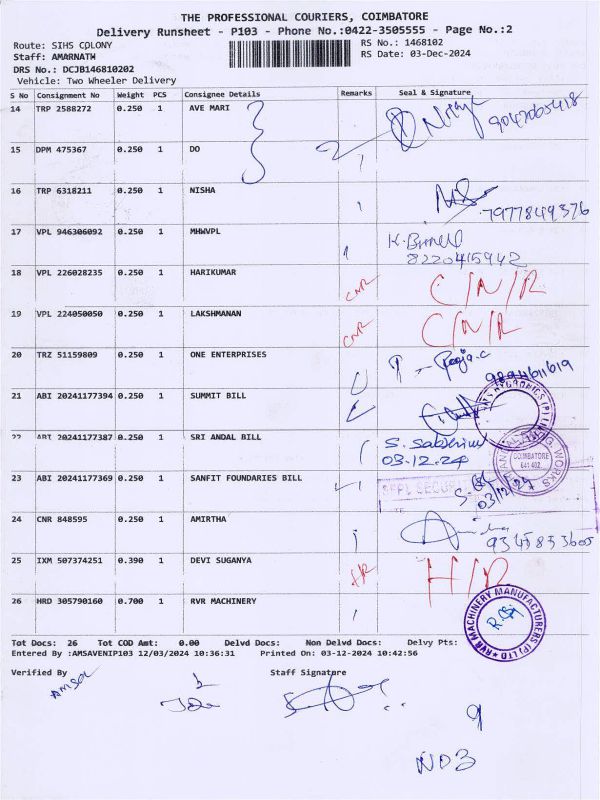 THE PROFESSIONAL COURIERS, COIMBATORE
Delivery Runsheet - P103 - Phone No.:0422-3505555 - Page No.:2
Route: SIHS COLONY RS No.: 1468102
Staff: AMARNATH RS Date: 03-Dec-2024
DRS No.: DCJB146810202
Vehicle: Two Wheeler Delivery
S No Consignment No Weight PCS Consignee Details Remarks Seal & Signature
14 TRP 2588272 0.250 1 AVE MARI
15 DPM 475367 0.250 1 DO
16 TRP 6318211 0.250 1 NISHA
7977849376
17 VPL 946306092 0.250 1 MHWVPL
8220415942
18 VPL 226028235 0.250 1 HARIKUMAR CNR C/N/R
19 VPL 224050050 0.250 1 LAKSHMANAN CNR C/N/R
20 TRZ 51159809 0.250 1 ONE ENTERPRISES
21 ABI 20241177394 0.250 1 SUMMIT BILL
22 ABI 20241177387 0.250 1 SRI ANDAL BILL
03.12.24
COIMBATORE
641 402
23 ABI 20241177369 0.250 1 SANFIT FOUNDARIES BILL
SFPL SECURITY
03/12/24
24 CNR 848595 0.250 1 AMIRTHA
25 IXM 507374251 0.390 1 DEVI SUGANYA
26 HRD 305790160 0.700 1 RVR MACHINERY
RVR MACHINERY MANUFACTURERS (P) LTD
Tot Docs: 26 Tot COD Amt: 0.00 Delvd Docs: Non Delvd Docs: Delvy Pts:
Entered By :AMSAVENIP103 12/03/2024 10:36:31 Printed On: 03-12-2024 10:42:56
Verified By Staff Signature
9
ND3